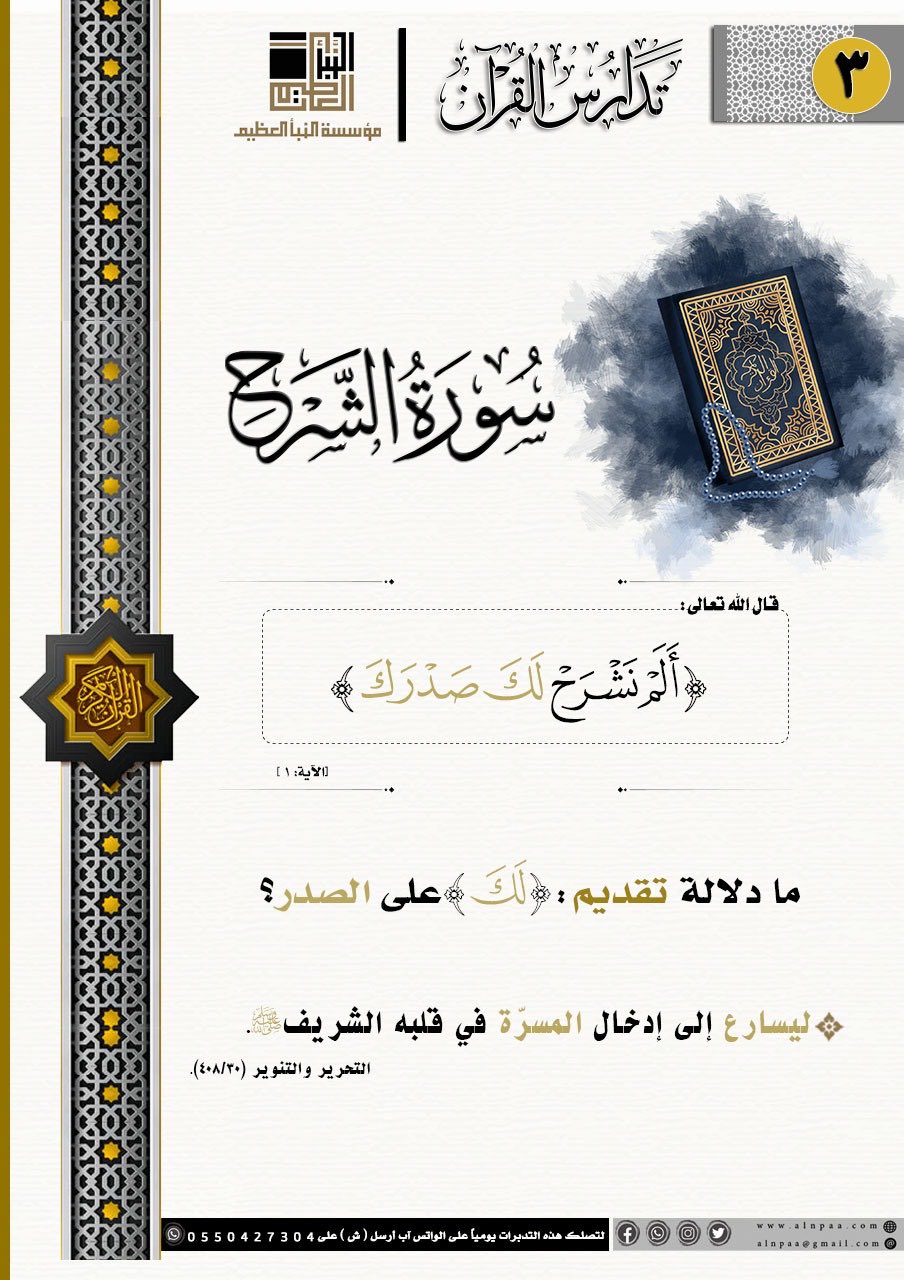 ٣
تَدَارُسُ القُرْآن
النبأ العظيم
مؤسسة النبأ العظيم
سُورَةُ الشَّرْحِ
قال الله تعالى:
﴿أَلَمْ نَشْرَحْ لَكَ صَدْرَكَ﴾
[الآية: ١]
القرآن الكريم
ما دلالة تقديم: ﴿لَكَ﴾ على الصدر؟
ليسارع إلى إدخال المسرّة في قلبه الشريف ﷺ.
التحرير والتنوير (٤٠٨/٣٠).
www.alnpaa.com
alnpaa@gmail.com
لتصلك هذه التدبرات يومياً على الواتس آب أرسل ( ش ) على 0550427304